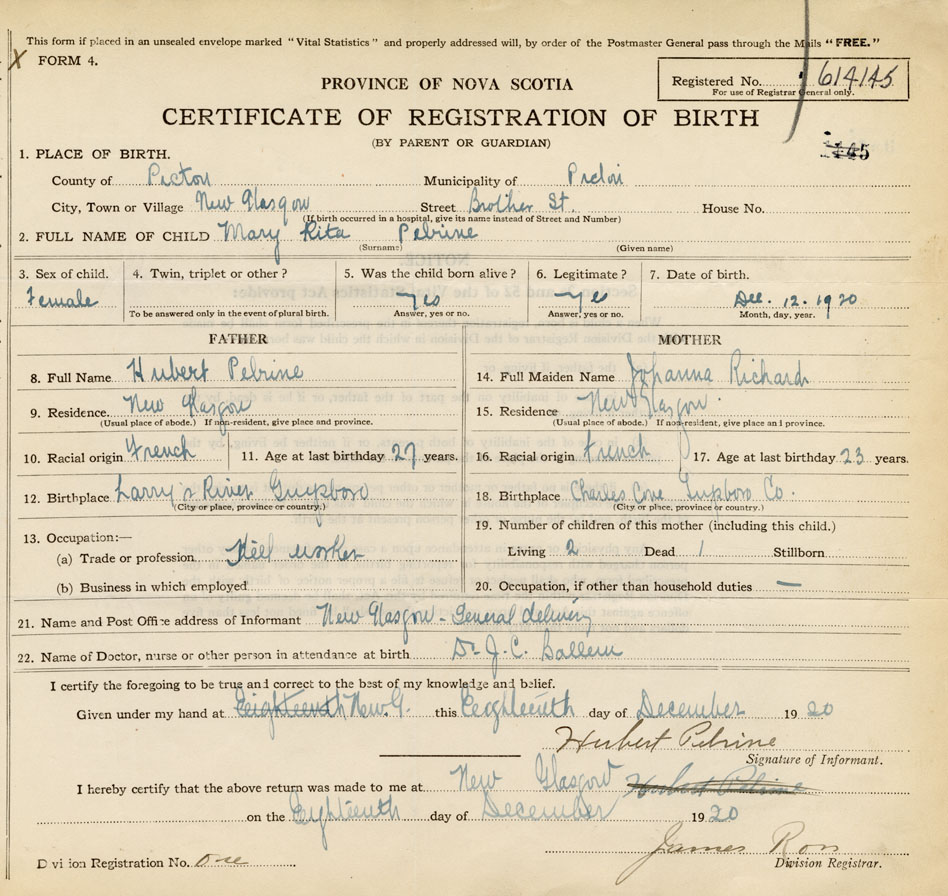 This form if placed in an unsealed envelope marked "Vital Statistics" and properly addressed will, by order of the Postmaster General pass through the Mails "FREE."
X FORM 4.
Registered No. 614145
For use of Registrar General only.
PROVINCE OF NOVA SCOTIA
CERTIFICATE OF REGISTRATION OF BIRTH
(BY PARENT OR GUARDIAN)
1. PLACE OF BIRTH.
County of Pictou Municipality of Pictou
City, Town or Village New Glasgow Street Brother St. House No.
(If birth occurred in a hospital, give its name instead of Street and Number)
2. FULL NAME OF CHILD Mary Rita Pelrine
(Surname) (Given name)
3. Sex of child. 4. Twin, triplet or other? 5. Was the child born alive? 6. Legitimate? 7. Date of birth.
Female Yes Yes Dec. 12. 1920
To be answered only in the event of plural birth. Answer, yes or no. Answer, yes or no. Month, day, year.
FATHER MOTHER
8. Full Name Hubert Pelrine 14. Full Maiden Name Johanna Richard
9. Residence. New Glasgow 15. Residence New Glasgow.
(Usual place of abode.) If non-resident, give place and province. (Usual place of abode.) If non-resident, give place and province.
10. Racial origin French 11. Age at last birthday 27 years. 16. Racial origin French 17. Age at last birthday 23 years.
12. Birthplace Larry's River Guysboro 18. Birthplace Charles Cove Guysboro Co.
(City or place, province or country.) (City or place, province or country.)
13. Occupation:— 19. Number of children of this mother (including this child.)
(a) Trade or profession Steel worker Living 2 Dead 1 Stillborn
(b) Business in which employed 20. Occupation, if other than household duties —
21. Name and Post Office address of Informant New Glasgow - General delivery
22. Name of Doctor, nurse or other person in attendance at birth Dr J. C. Ballem
I certify the foregoing to be true and correct to the best of my knowledge and belief.
Given under my hand at Eighteenth New G. this Eighteenth day of December 1920
Hubert Pelrine
Signature of Informant.
I hereby certify that the above return was made to me at New Glasgow Hubert Pelrine
on the Eighteenth day of December 1920
James Ross
Division Registration No. one Division Registrar.